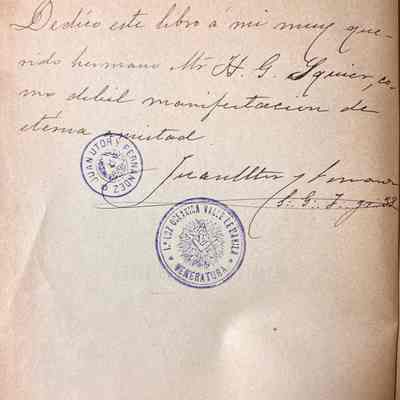 Dedico este libro á mi muy que-
rido hermano Mr H. G. Squier, co-
mo debil manifestacion de
etérna amistad
Juan Utor y Fernand
S. G. I. gr 33
JUAN UTOR Y FERNANDEZ
VALLE DE LA HABANA
VENERATURA